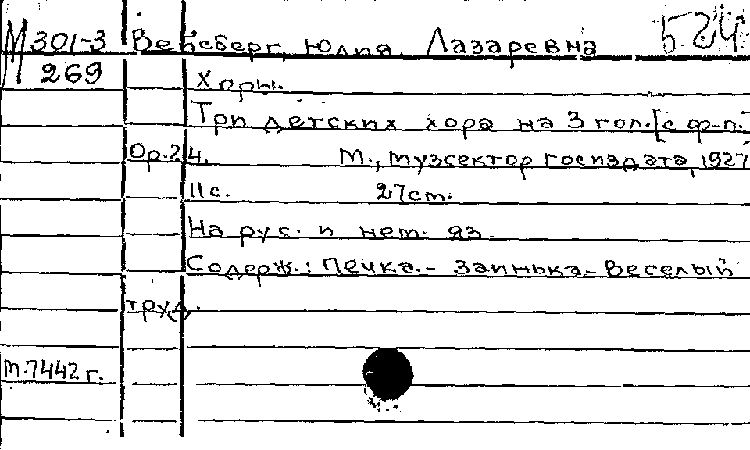 М 301-3 Вейсберг, Юлия Лазаревна 524
269 Хоры.
Три детских хора на 3 гол. [с ф-п.]
Ор. 24. М., музсектор госиздата, 1927
11 с. 27 cm.
На рус. и нем. яз.
Содерж.: Печка.- Заинька.- Веселый
труд.
М.7442 г.